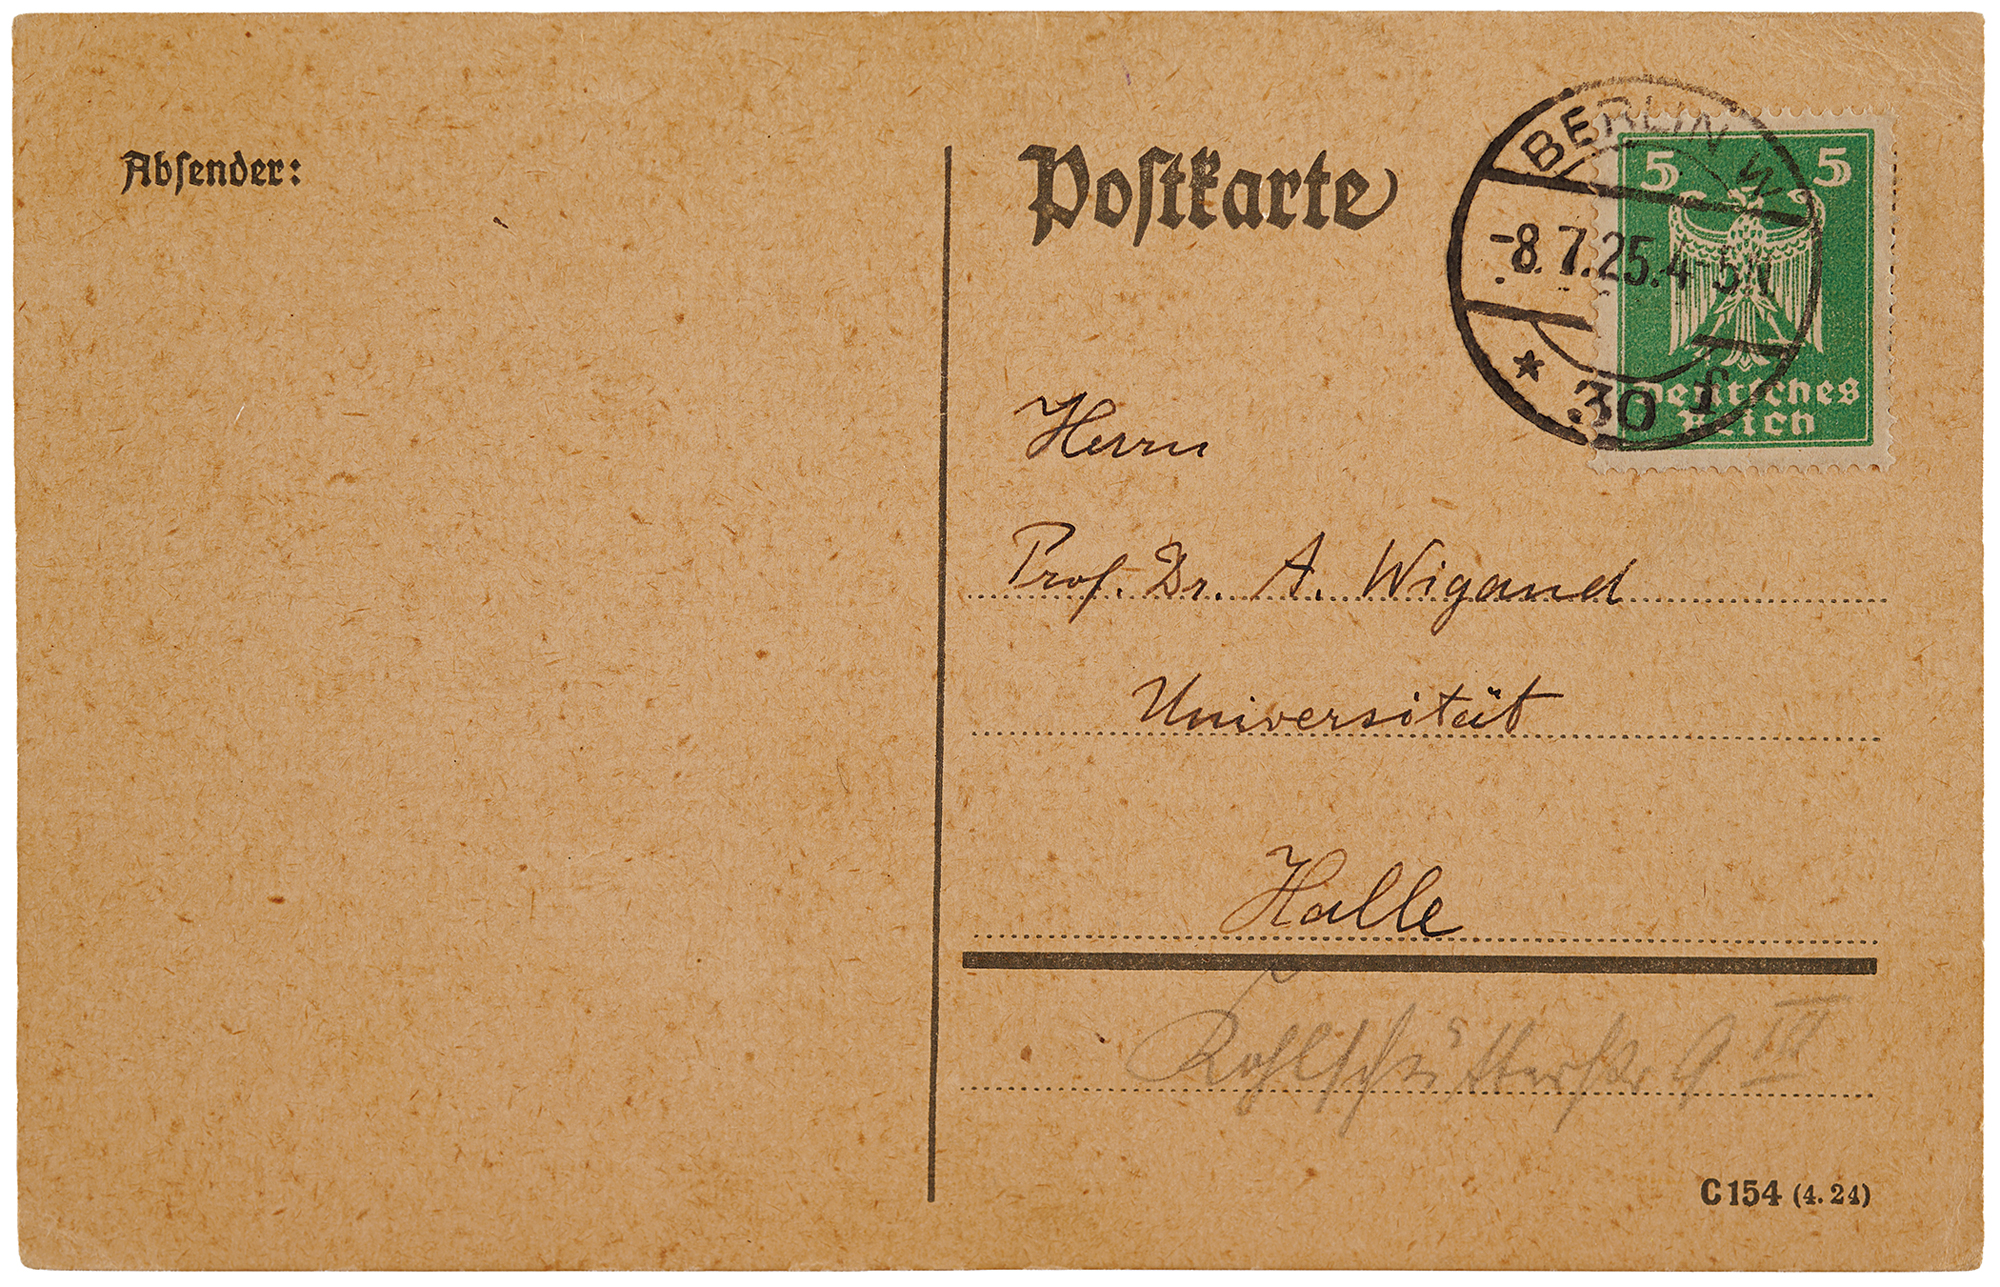 Absender:
Postkarte
BERLIN W
-8.7.25.4-5N
* 30 f
5 5
Deutsches
Reich
Herrn
Prof. Dr. A. Wigand
Universität
Halle
Kohlschütterstr. 9 III
C 154 (4. 24)